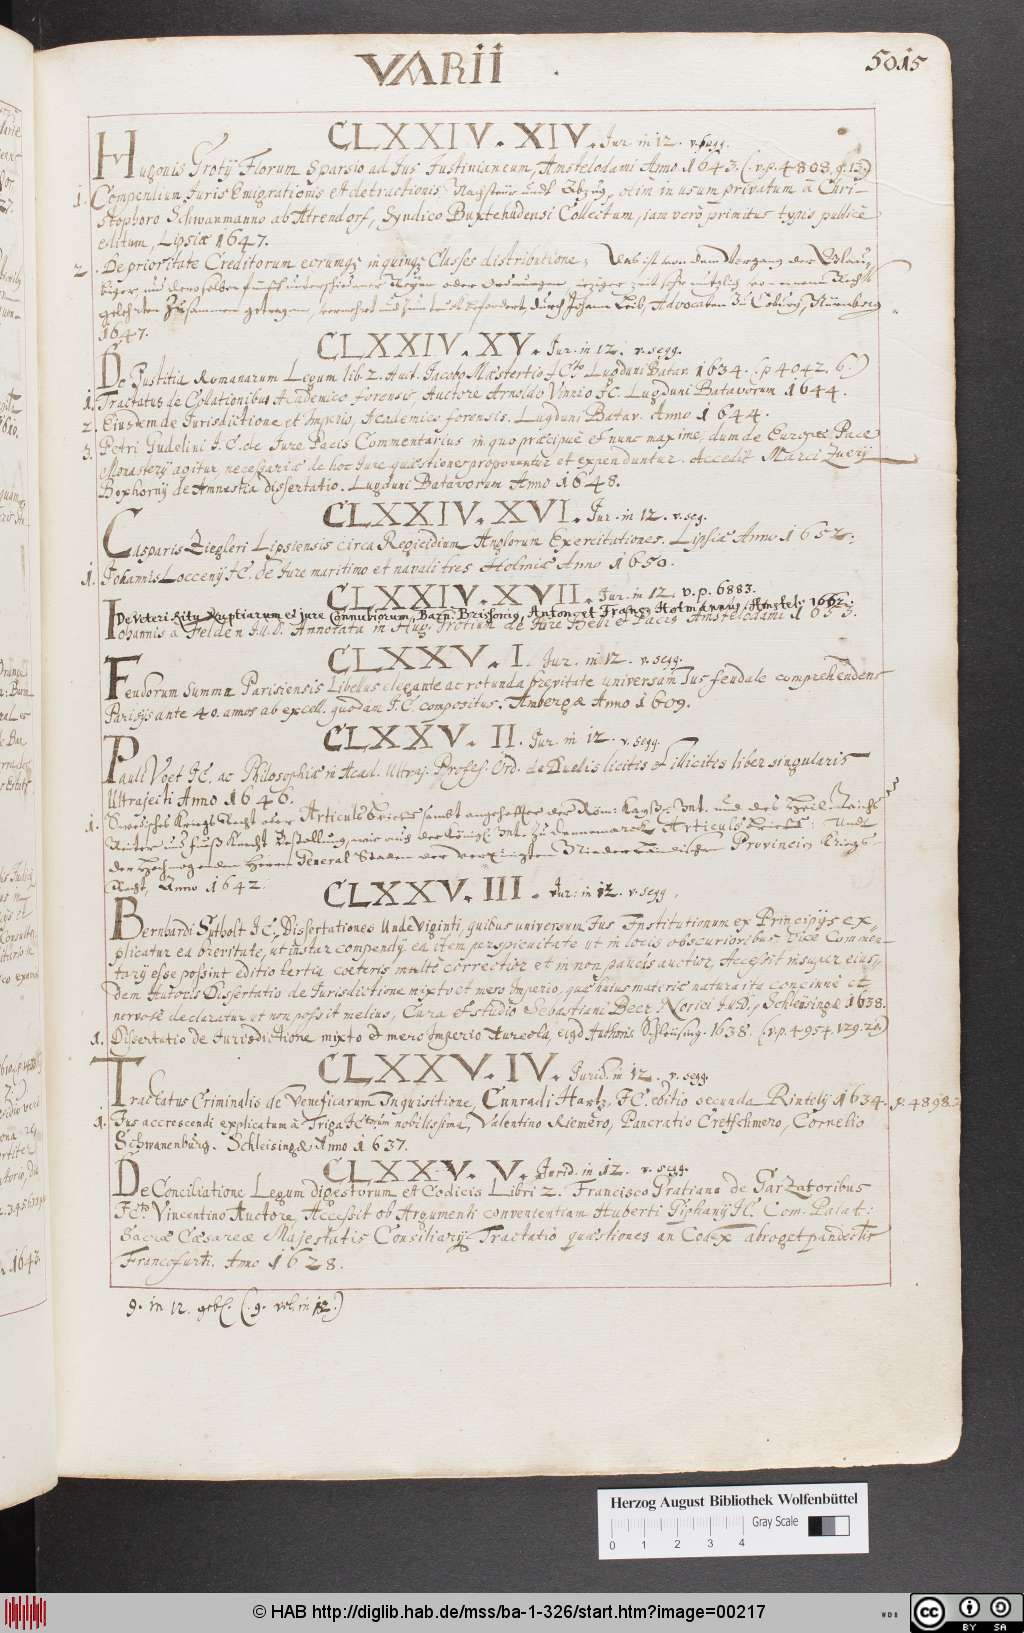 VARII
5015
CLXXIV. XIV. Jur. in 12. v. seqq.
Hugonis Grotij Florum Sparsio ad Jus Justinianeum, Amstelodami Anno 1643. (. v. p. 4808. q. 13.)
1. Compendium Juris Emigrationis et detractionis Nachsteür undt Abzug, olim in usum privatum à Chri-
stophoro Schwanmanno ab Atrendorf, Syndico Buxtehudensi Collectum, iam verò primitus typis publicè
editum, Lipsiæ 1647.
2. De prioritate Creditorum eorumq; in quinq; Classes distributione; Das ist von dem Vorgang der Glau-
biger und derselben fünff unterschiedener
zusammen getragen, vermehret durch Johann Leib, Advocaten zu Coburg, Nürenberg
1647.
CLXXIV. XV. Jur. in 12. v. seqq.
De Justitia Romanarum Legum lib. 2. Aut. Jacobo Mæstertio JCto Lugduni Batav. 1634. (. p. 4042. 6.)
1. Tractatus de Collationibus Academico forensis, Auctore Arnoldo Vinnio JC. Lugduni Batavorum 1644.
2. Eiusdem de Jurisdictione et Imperio, Academico forensis. Lugduni Batav. Anno 1644.
3. Petri Gudelini J.C. de Jure Pacis Commentarius in quo præcipuè et nunc maxime, dum de Europæ Pace
Monasterij agitur, necessariæ de hoc Jure quæstiones proponuntur et expenduntur. Accedit Marci Zuerij
Boxhornij de Amnestia dissertatio. Lugduni Batavorum Anno 1648.
CLXXIV. XVI. Jur. in 12. v. seq.
Casparis Ziegleri Lipsiensis circa Regicidium Anglorum Exercitationes. Lipsiæ Anno 1652.
1. Johannis Loccenij JC. de Jure maritimo et navali libri tres Holmiæ Anno 1650.
CLXXIV. XVII. Jur. in 12. v. p. 6883.
De veteri Ritu Nuptiarum et jure Connubiorum, Barn. Brissonig, Anton. et Franc. Hotmannus, Amstel. 1662.
Johannis à Felden J.U.D. Annotata in Hug. Grotium de Jure Belli et Pacis Amstelodami 1653.
CLXXV. I. Jur. in 12. v. seqq.
Feudorum Summa Parisiensis Libellus elegante ac rotunda brevitate universam Jus feudale comprehendens
Parisijs ante 40. annos ab excell. quodam J.C. compositus. Ambergæ Anno 1609.
CLXXV. II. Jur. in 12. v. seqq.
Pauli Voet JC. ac Philosophiæ in Acad. Ultraj. Profess. Ord. de Duellis licitis et illicitis liber singularis
Ultrajecti Anno 1646.
1. Schwedisches Kriegs Recht oder Articuls brieff samt angeheffter der Röm. Kayß. Mayt. und des Heil. Reichs
Reiter und Fuß Knecht Bestellung, wie auch der Königl. Mayt. zu Dennemarck Articuls brieff: Undt
der Hochmogenden Herrn General Staden der vereinigten Niederländischen Provincien Kriegs
Recht, Anno 1642.
CLXXV. III. Jur: in 12. v. seqq.
Bernhardi Sutholt JC. Dissertationes Undeviginti, quibus universum Jus Institutionum ex Principijs ex-
plicatur ea brevitate, ut instar compendij ea item perspicuitate ut in locis obscurioribus vice Commen-
tarij esse possint editio tertia coeteris multò correctior et in non paucis auctior, Accessit insuper eius-
dem Autoris Dissertatio de Jurisdictione mixto et mero Imperio, quæ huius materiæ natura ita concinnè et
nervosè declaratur, et non possit melius, Cura et studio Sebastiani Beer Norici J.U.D., Schleusingæ 1638.
1. Dissertatio de Jurisdictione mixto et mero Imperio Aureola, eiqd Authoris. Schleusing. 1638. (v. p. 4954. 129. 28)
CLXXV. IV. Jurid. in 12. v. seqq.
Tractatus Criminalis de Veneficarum Inquisitione, Cunradi Hartz, JC. editio secunda Rintelij 1634. p. 4898.
1. Jus accrescendi explicatum à Triga JCtorum nobilissima, Valentino Riemero, Pancratio Cretschmero, Cornelio
Schwanenburg. Schleisingæ Anno 1637.
CLXXV. V. Jurid. in 12. v. seqq.
De Conciliatione Legum digestorum et Codicis Libri 2. Francisco Gratiano de Garzatoribus
JCto Vincentino Auctore, Accessit ob Argumenti convenientiam Huberti Giphanij JC. Com. Palat:
Sacræ Cæsareæ Majestatis Consiliarij Tractatio quæstiones an Codex abroget pandectis
Francofurti. Anno 1628.
9. in 12. geb. (. 9. vol. in 12.)
Herzog August Bibliothek Wolfenbüttel
Gray Scale
0 1 2 3 4
© HAB http://diglib.hab.de/mss/ba-1-326/start.htm?image=00217
WDB
cc BY SA